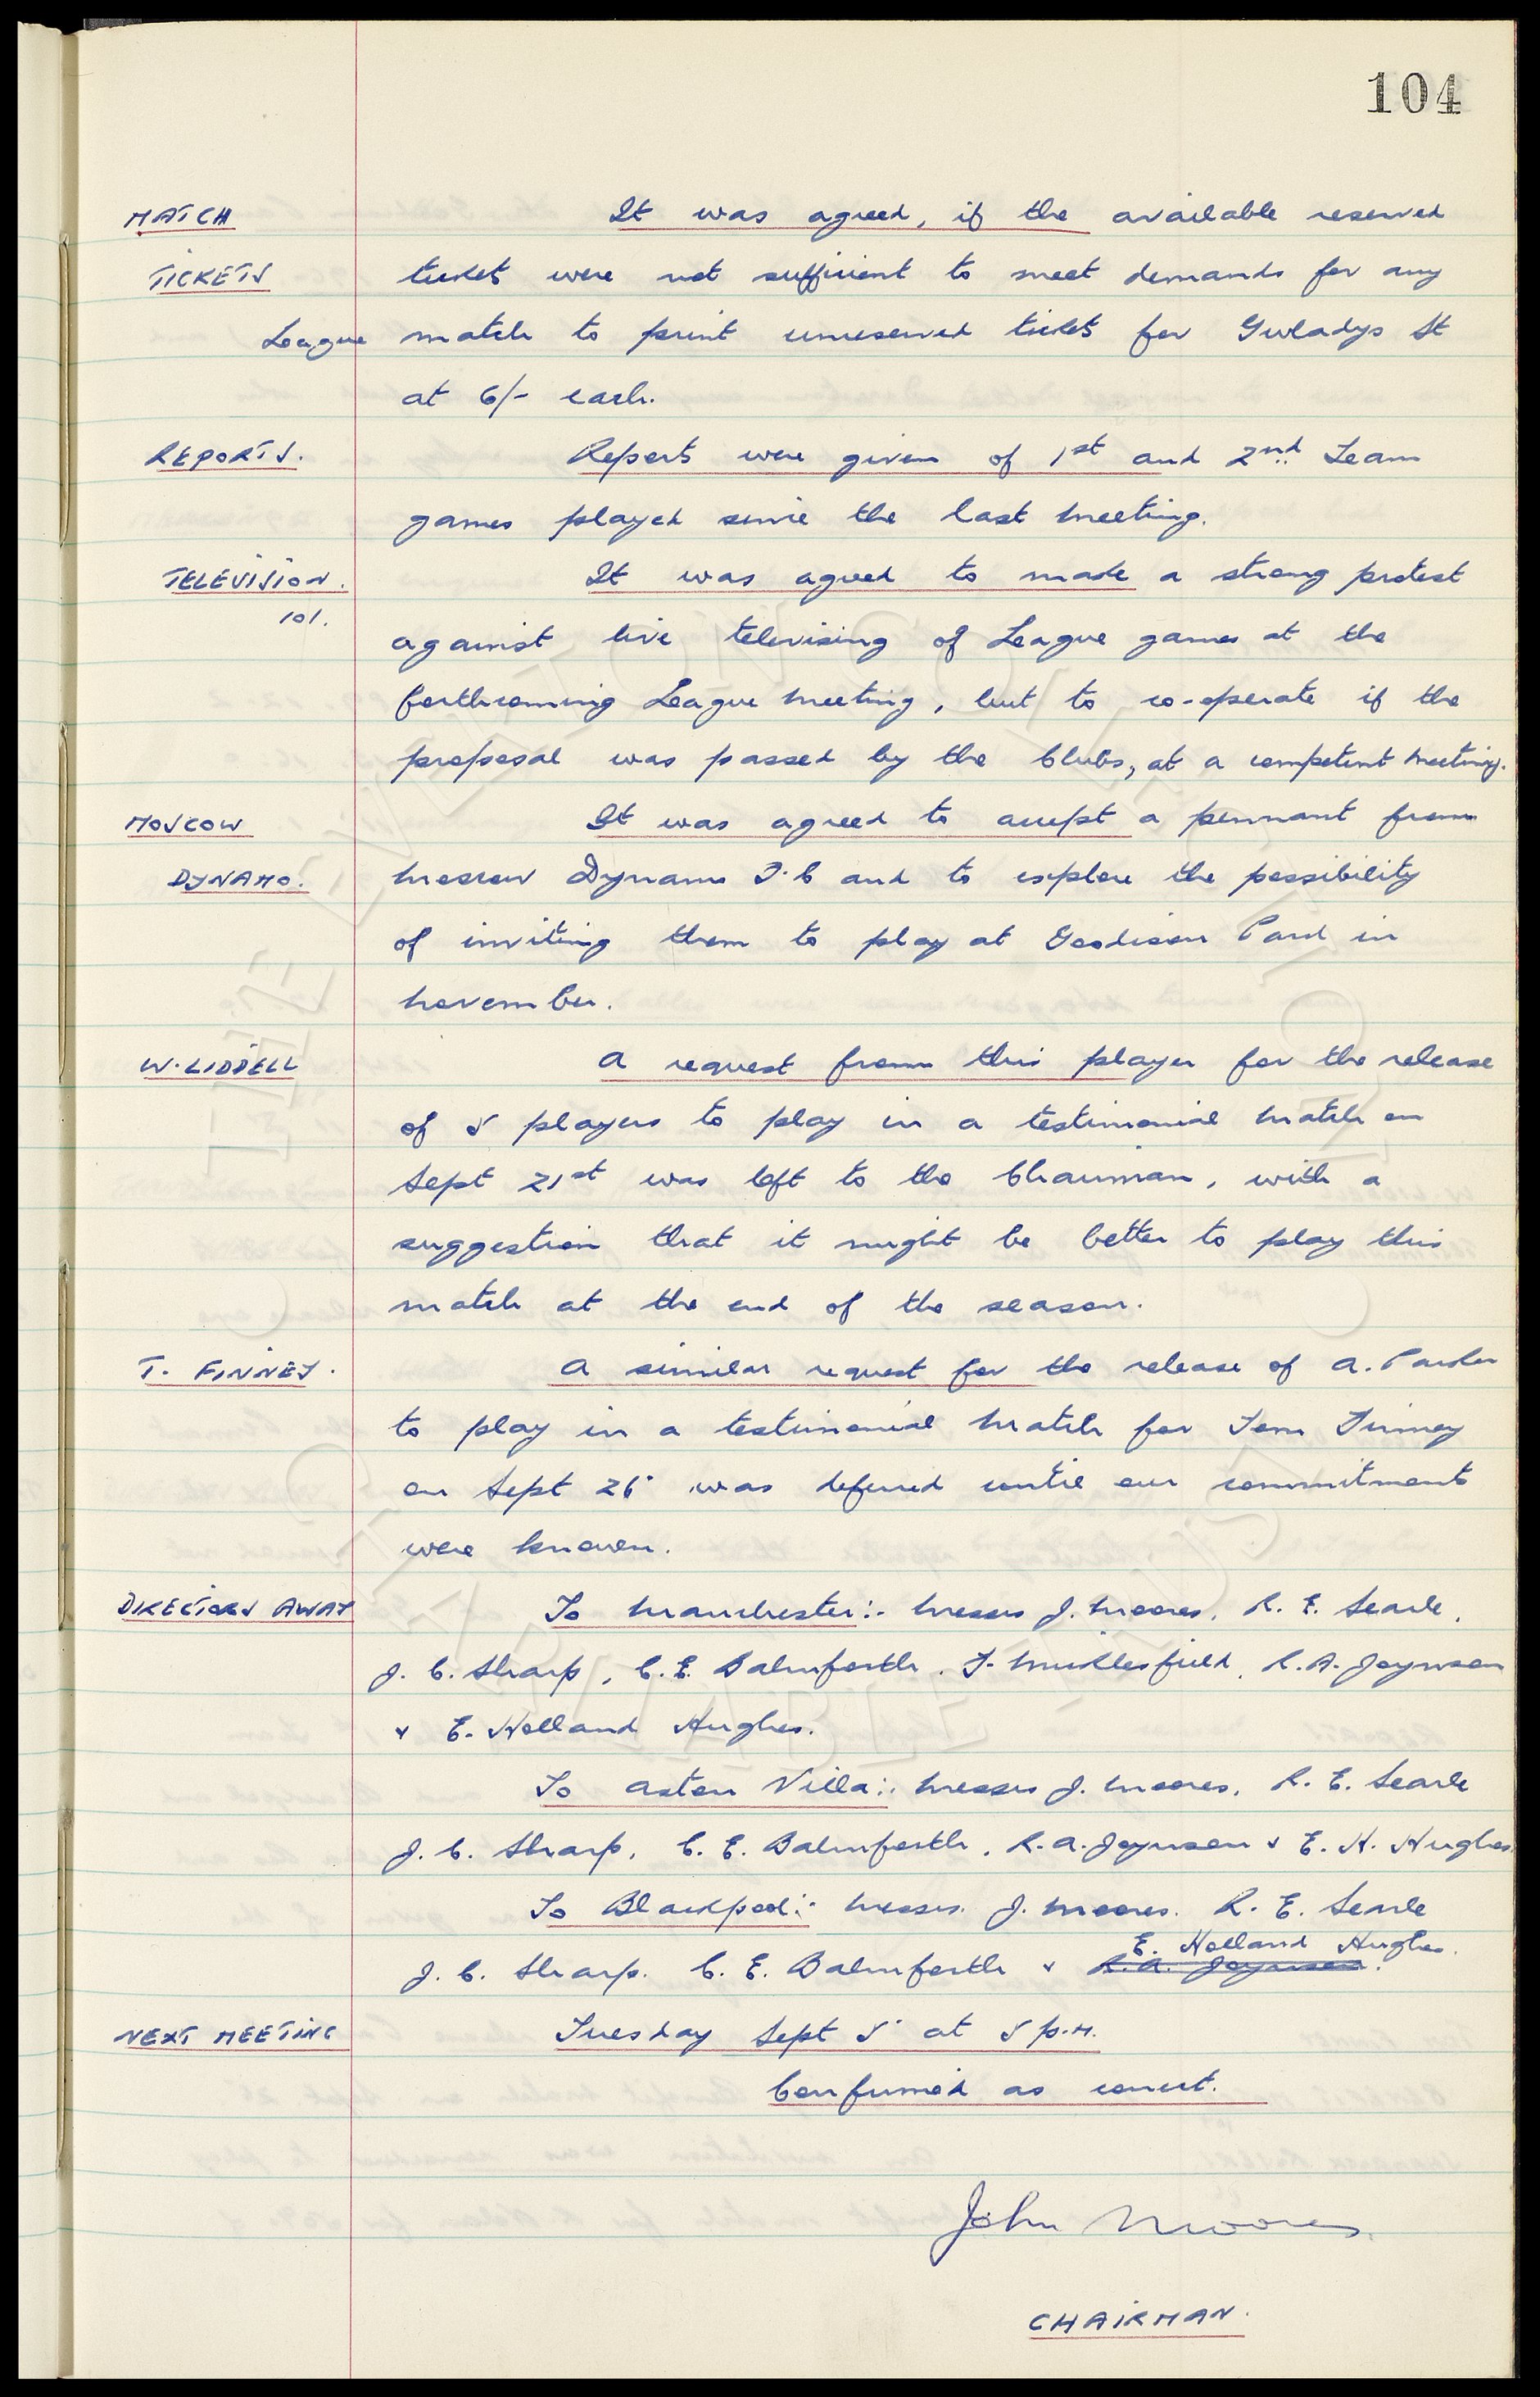 104
MATCH It was agreed, if the available reserved
TICKETS tickets were not sufficient to meet demands for any
League match to print unreserved tickets for Gwladys St
at 6/- each.
REPORTS. Reports were given of 1st and 2nd Team
games played since the last meeting.
TELEVISION. It was agreed to made a strong protest
101.
against live televising of League games at the
forthcoming League meeting, but to co-operate if the
proposal was passed by the Clubs, at a competent meeting.
MOSCOW It was agreed to accept a pennant from
DYNAMO. Moscow Dynamo F.C and to explore the possibility
of inviting them to play at Goodison Park in
November.
W. LIDDELL A request from this player for the release
of 5 players to play in a testimonial match on
Sept 21st was left to the Chairman, with a
suggestion that it might be better to play this
match at the end of the season.
T. FINNEY. A similar request for the release of A. Parker
to play in a testimonial match for Tom Finney
on Sept 26 was deferred until our commitments
were known.
DIRECTORS AWAY To Manchester:- Messrs J. Moores, R. E. Searle,
J. C. Sharp, C. E. Balmforth, F. Micklesfield, R. A. Joynson
& E. Holland Hughes.
To Aston Villa:- Messrs J. Moores, R. E. Searle
J. C. Sharp, C. E. Balmforth, R. A. Joynson & E. H. Hughes
To Blackpool:- Messrs. J. Moores. R. E. Searle
E. Holland Hughes.
J. C. Sharp. C. E. Balmforth & R. A. Joynson.
NEXT MEETING Tuesday Sept 5 at 5 p.m.
Confirmed as correct.
John Moores
CHAIRMAN.